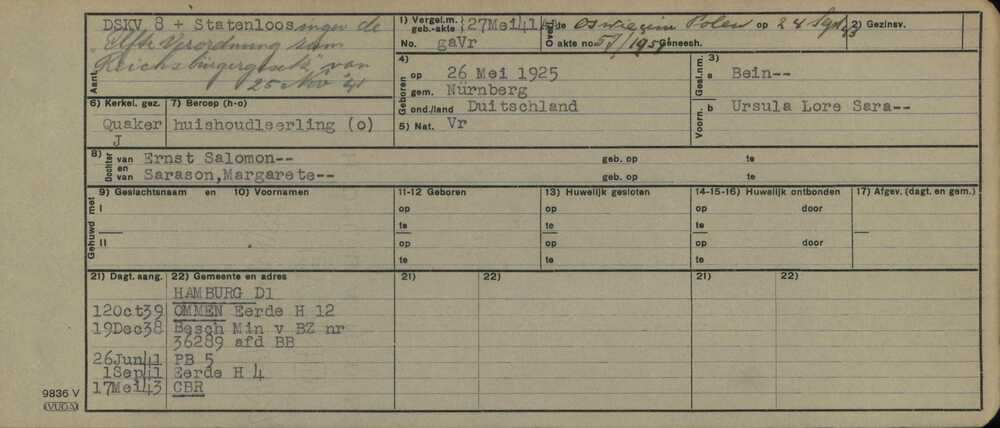 DSKV 8 + Statenloos ingev de
Elfte Verordnung zum
Reichsbürgergesetz van
25 Nov '41
Aant.
1) Vergel.m. geb.-akte 27Mei41AB
No. gaVr
Overl. de Oswiecim Polen op 28 Sept 43
akte no 57/1951 Geneesh.
2) Gezinsv.
4)
Geboren
op 26 Mei 1925
gem. Nürnberg
ond./land Duitschland
5) Nat. Vr
3)
Gesl.nm.
a Bein--
Voorn.
b Ursula Lore Sara--
6) Kerkel. gez. 7) Beroep (h-o)
Quaker huishoudleerling (o)
J
8)
Dochter
van Ernst Salomon-- geb. op te
en
van Sarason,Margarete-- geb. op te
9) Geslachtsnaam en 10) Voornamen 11-12 Geboren 13) Huwelijk gesloten 14-15-16) Huwelijk ontbonden 17) Afgev. (dagt. en gem.)
Gehuwd met
I op op op door
te te te
II op op op door
te te te
21) Dagt. aang. 22) Gemeente en adres 21) 22) 21) 22)
HAMBURG D1
12Oct39 OMMEN Eerde H 12
19Dec38 Besch Min v BZ nr
36289 afd BB
26Jun41 PB 5
1Sep41 Eerde H 4
17Mei43 CBR
9836 V
VUGA